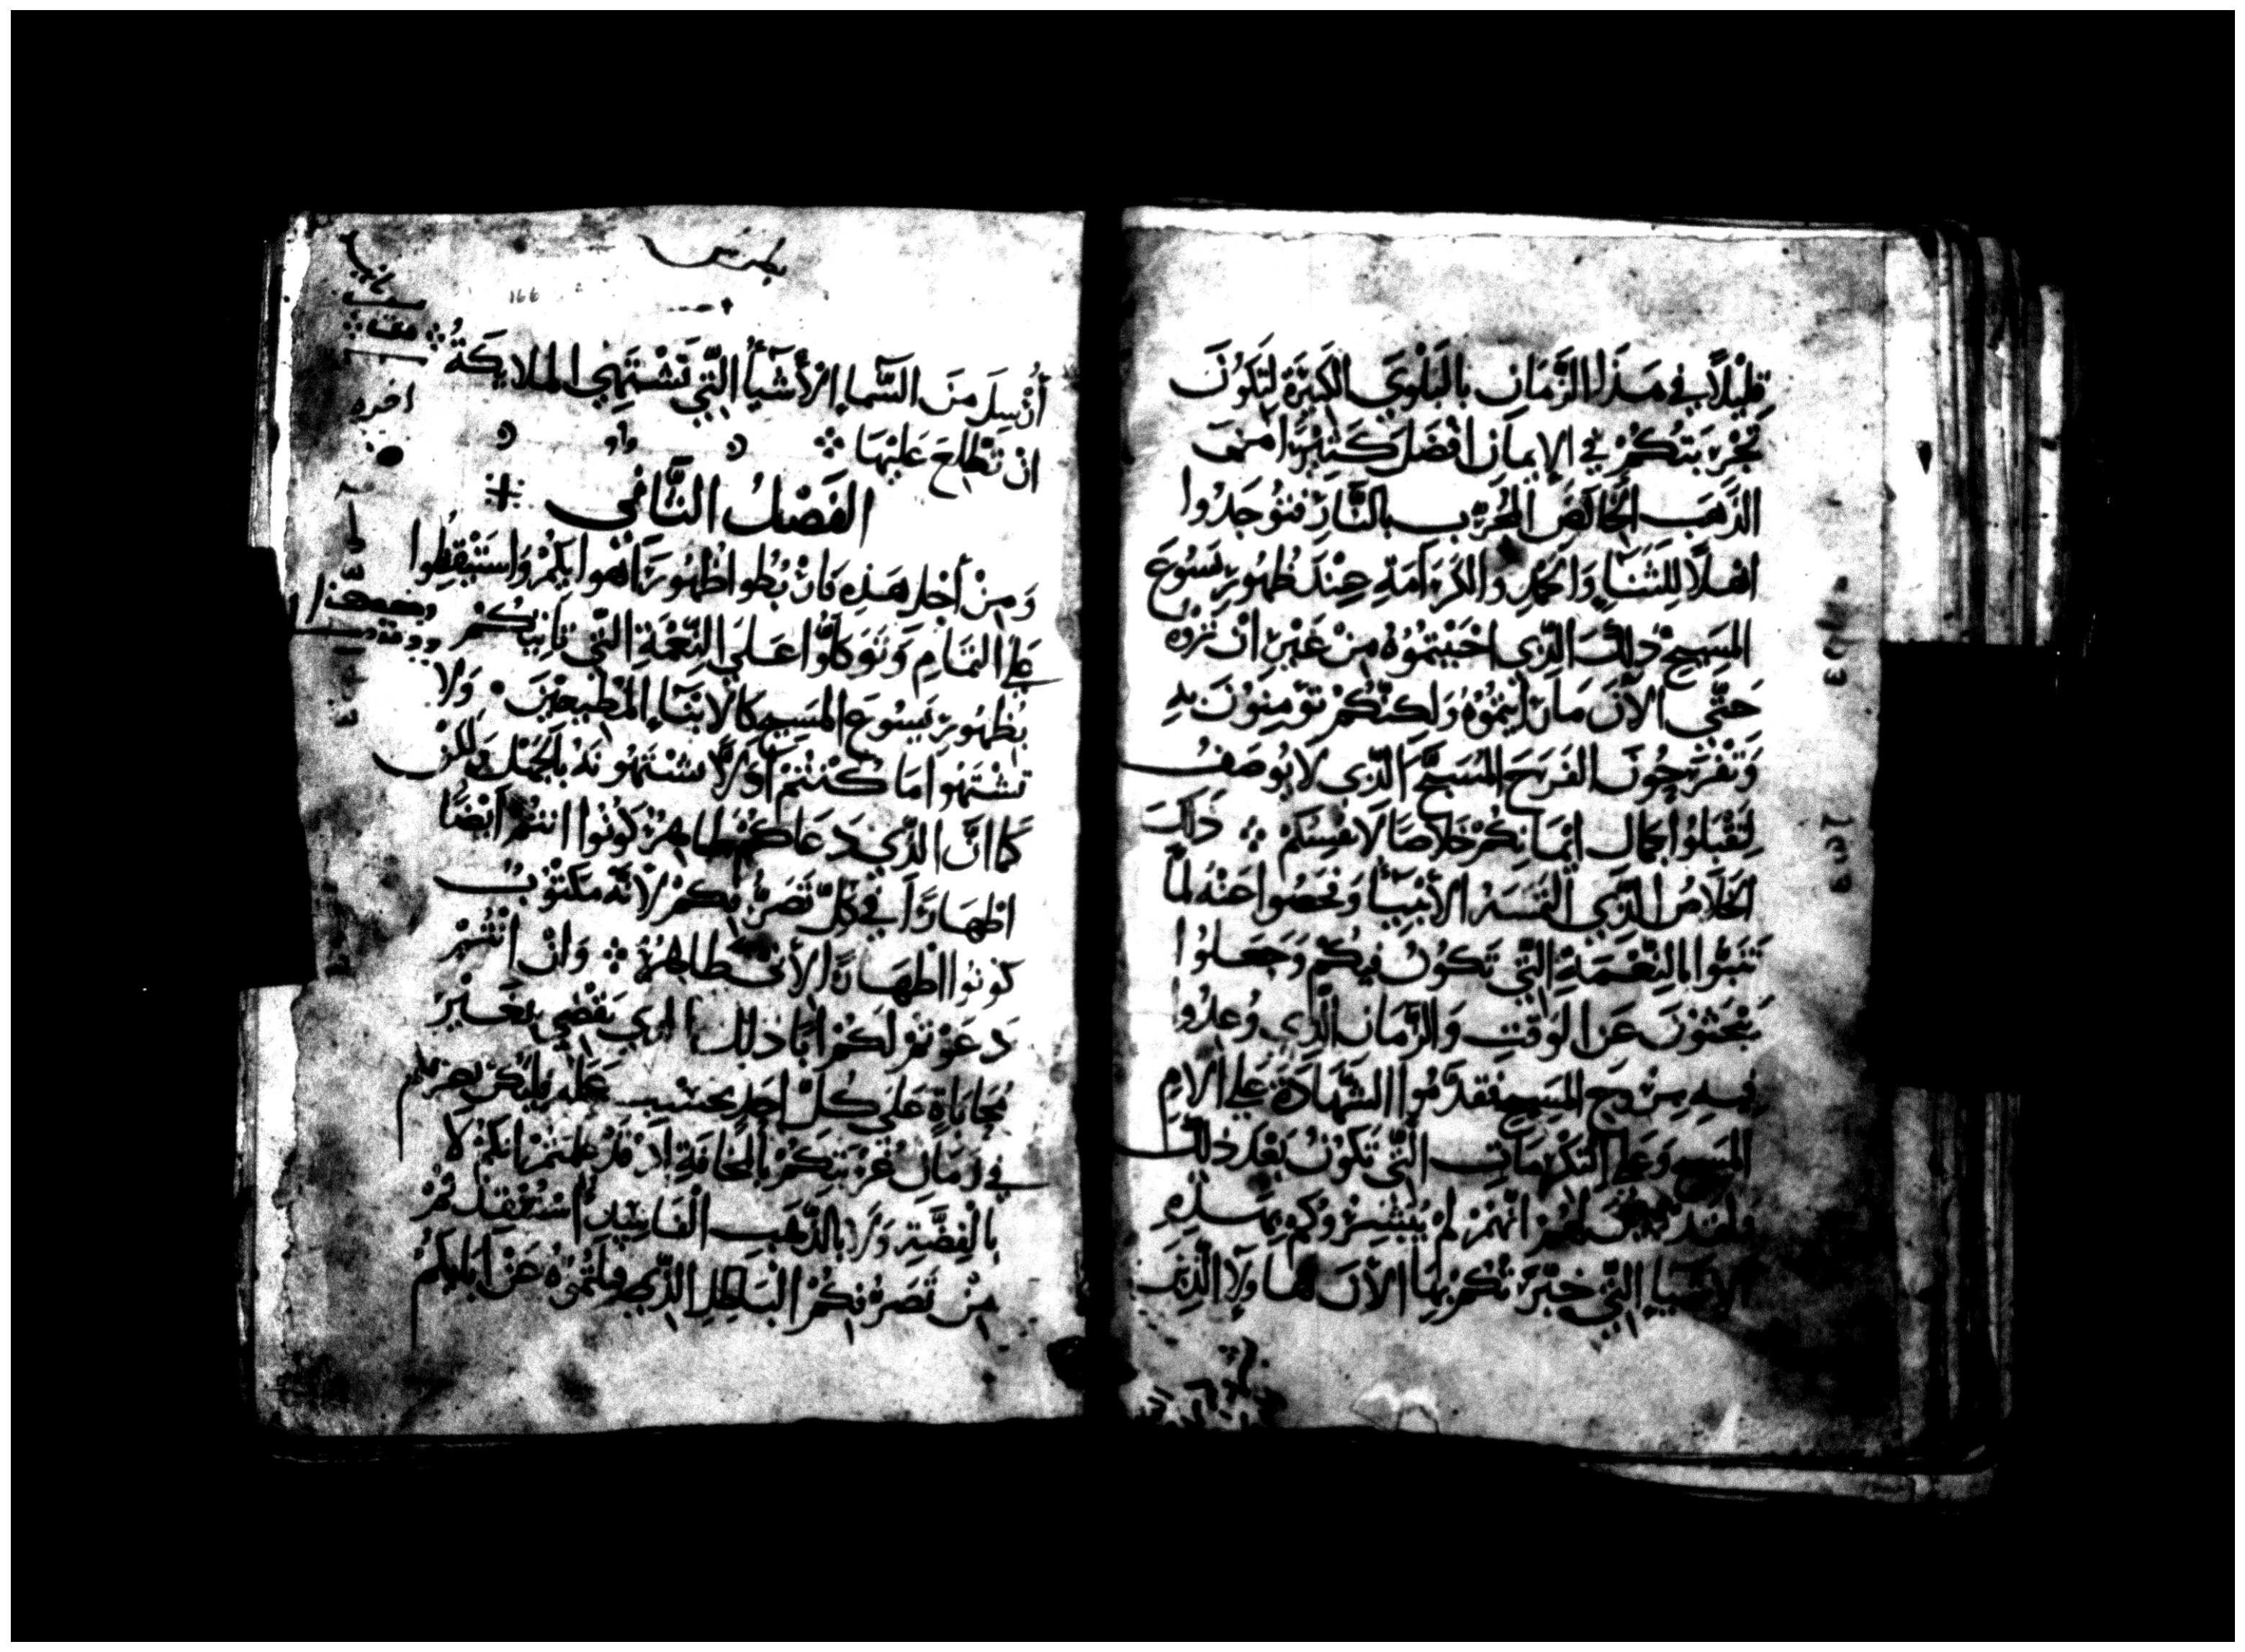 قَلِيْلاً في هَذَا الزَّمَانِ بالبَلْوَي الكَبِيْرَةِ لتَكُوْنَ
تَجْرِبَتكُمْ فِي الإيمَانِ افْضَلَ كَثِيْرًا مِنَ
الذَّهَبِ الخَالِصِ المُجَرَّبِ بالنَّارِ فتُوْجَدُوا
اهْلاً لِلثَنَاءِ وَالحَمْدِ والكَرَامَةِ عِنْدَ ظُهُورِ يَسُوعَ
المَسِيحِ ذَلِكَ الَّذِي احْبَبْتمُوُهُ مِنْ غَيْرِ انْ تَرَوْهُ
حَتَّي الآنَ مَا رَايْتمُوْهُ وَلَكِنَّكُمْ تُوَمِنُوْنَ بِهِ
وَتَفْرَحُوْنَ الفَرَحَ المُسَبَّحَ الَّذِي لاَ يُوصَفُ
لِتَقْبَلُوا كمَال ايْمَانِكُمْ خَلاَصًا لاَنفسِكمْ ؞ ذَلِكَ
الخَلاَصُ الَّذِي الْتَمَسَهُ الأنْبِيَأُ وَفحَصُوا عَنْهُ لمَّا
تَنَبَّوا بالنِّعْمَةِ الَّتِي تَكُوْنُ فيكُمْ وَجَعَلُوْا
يَبْحَثُوْنَ عَنِ الوَقتِ وَالزَّمَانِ الَّذِي وُعِدُوا
فِيهِ مِنْ رُوحِ المَسِيحِ فقدَّمُوا الشَّهَادَةَ عَلَي الامِ
المَسِيحِ وَعَلَي الكَرَامَاتِ الَّتِي تَكُوْنُ بَعْدَ ذَلِكَ
ولقد لهُمْ انَّهُمْ لَمْ يُبَشِّرُوكُم بِهَذِهِ
الاشْيَا الَّتِي خبَّرَتْكُمْ بِهَا الأنَ
بطرس
166
أُرْسِلَ مِنَ السَّمَاءِ الأَشْيَأُ الَّتِي تَشْتَهِي الملايكَةُ ؞
انْ تَطَّلِعَ عَليْهَا ؞
الفَصْلُ الثَّانِي
وَمِنْ أَجْل هَذِهِ فَارْبُطوا ظُهُورَ اهْوايكُمْ وَاستَيْقِظُوا
عَلَي التمَامِ وَتَوَكلُوا عَلَي النِّعْمَةِ الَّتِي تَاتِيكُمْ
بِظُهُورِ يَسُوعَ المَسِيحِ كَالابْنَاءِ المُطِيعِيْنَ • وَلا
تشْتَهُوا مَا كُنْتُمْ أوَّلاً تشْتَهُونهُ بالجَهْلِ وَلَكن
كمَا انَّ الذِّي دَعَاكُمْ طَاهِرٌ كُونُوا انتُمُ أَيْضًا
اطْهَارًا فِي كُلِّ تَصَرُّفِكمْ لأنَّهُ مَكتُوْبُ
كوُنوُا اطْهَارًا لأَنِّي طَاهِرٌ ؞ وَانْ انْتُمْ
دَعَوْتمْ لَكُمْ ابًا ذلِكَ الذي يَقْضِي بغَيْرِ
مُحَابَاةٍ عَلَي كُلِّ احَدٍ بحَسْبِ عَمَلِهِ
فِي زَمَانِ غُرْبَتِكُمْ بالمخَافَةِ اذ قَدْ عَلمتمْ انكمْ لاَ
بالْفِضَّةِ وَلاَ بالذَّهَبِ الفَاسِدِ اسْتُنْقِذْتُمْ
مِنْ تَصَرُّفكُمْ البَاطِلِ الَّذِي قبلتموُهُ عَنْ ابَايكُمْ